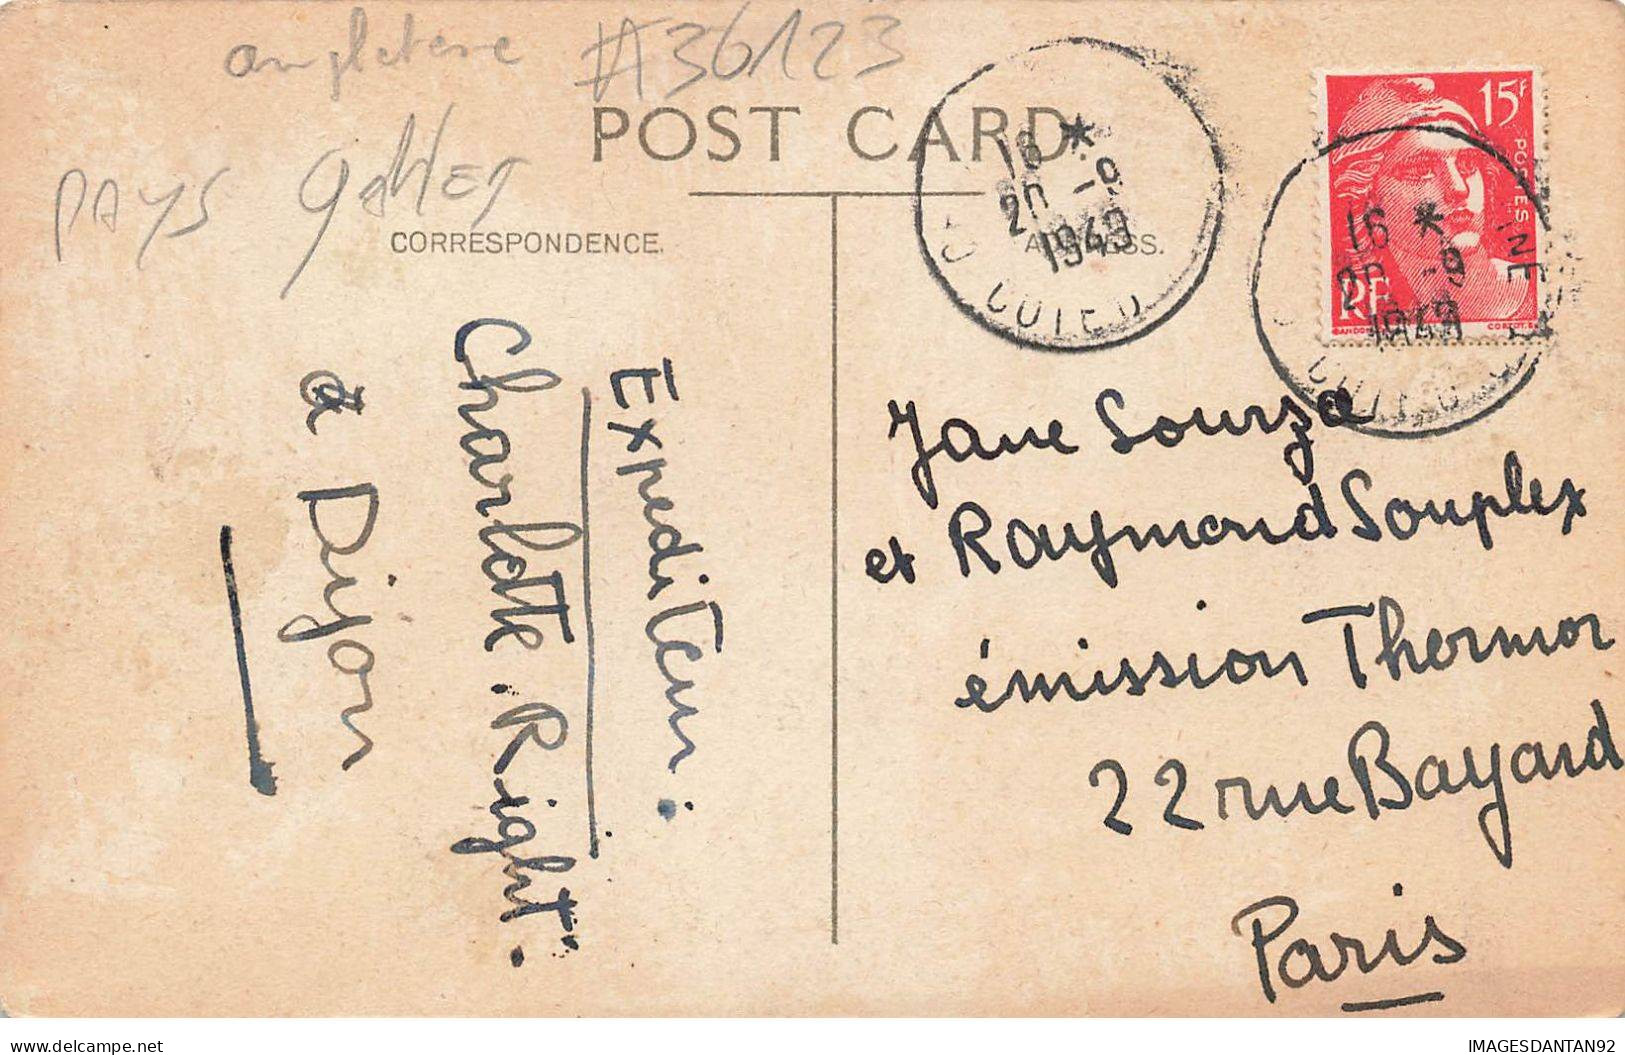 angleterre #36123
PAYS galles
POST CARD
CORRESPONDENCE.
16 *
20 -9
1949
15F
POSTES
RF
16 *
20 -9
1949
Expediteur :
Charlotte. Right.
à Dijon
Jane Sourza
et Raymond Souplex
émission Thermor
22 rue Bayard
Paris
IMAGESDANTAN92